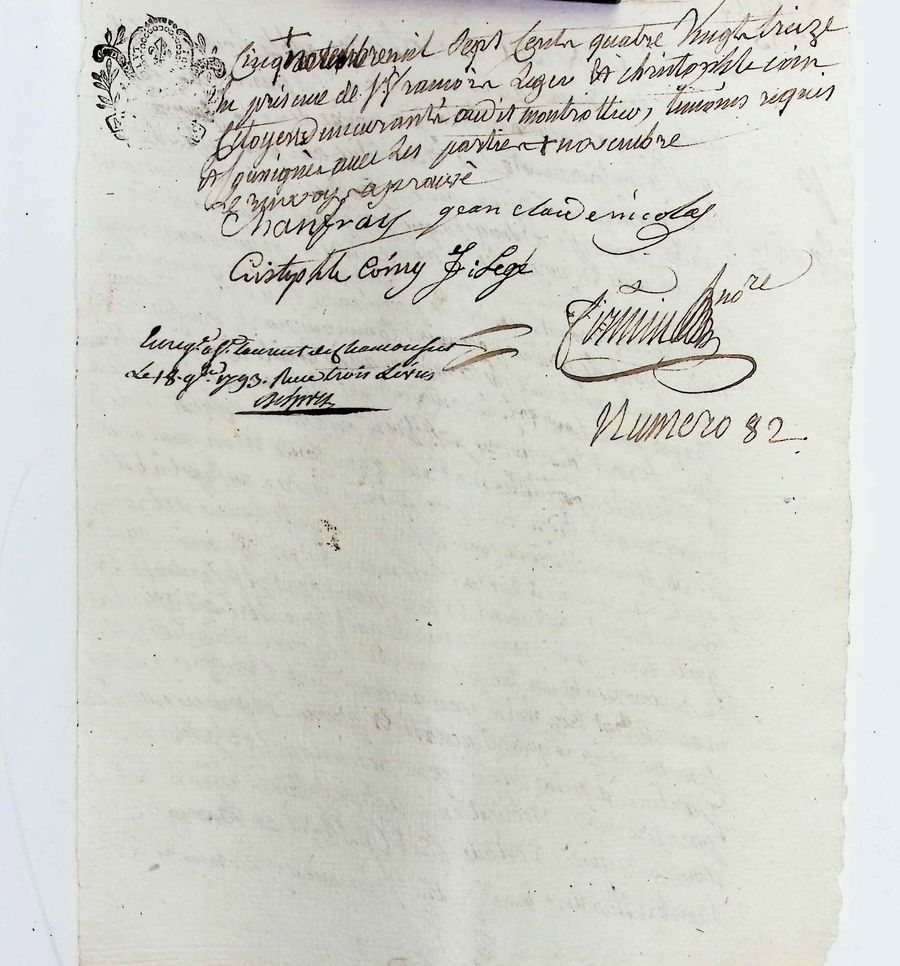 Cinq + mil Sept Cents quatre Vingt treize
En présence de françois Leger & christophle
Citoyens demeurants audit montrottier, témoins requis
& Soussignés avec Les parties + novembre
Le approuvé
Chanfray jean claude nicolas
Cristophle Cörny Legé
Firmin Notre
Enregé. à St. Laurent de Chamousset
Le 18. 9bre. 1793. Reçu trois Livres
Numero 82.